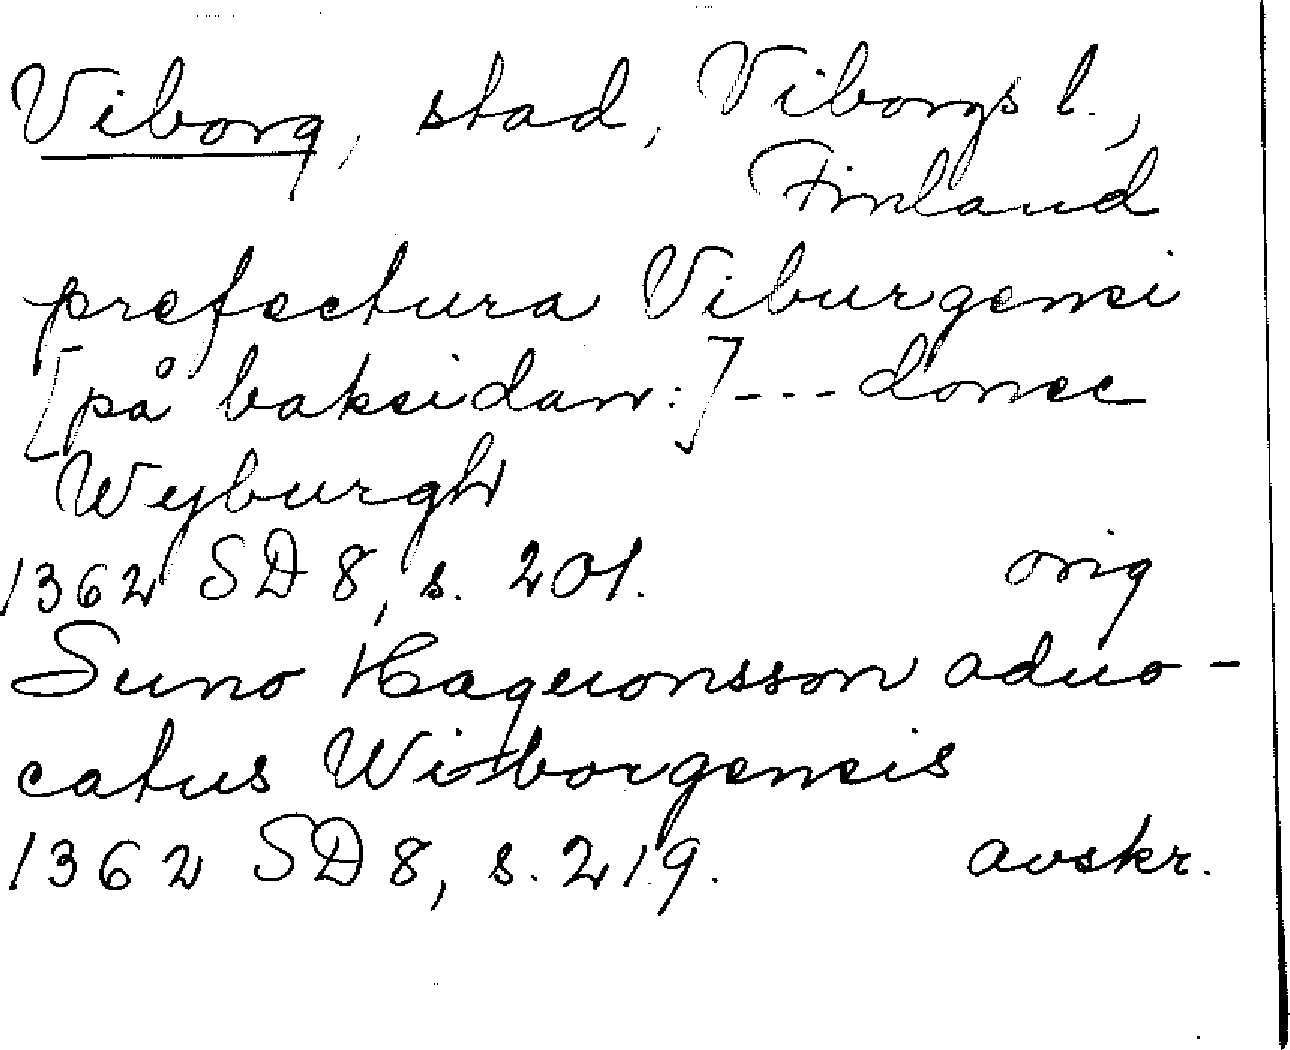 Viborg, stad, Viborgs l.,
Finland
prefectura Viburgensi
[på baksidan:] --- donec
Wyburgh
1362 SD 8, s. 201. orig
Suno Haquonsson aduo-
catus Wisborgensis
1362 SD 8, s. 219. avskr.